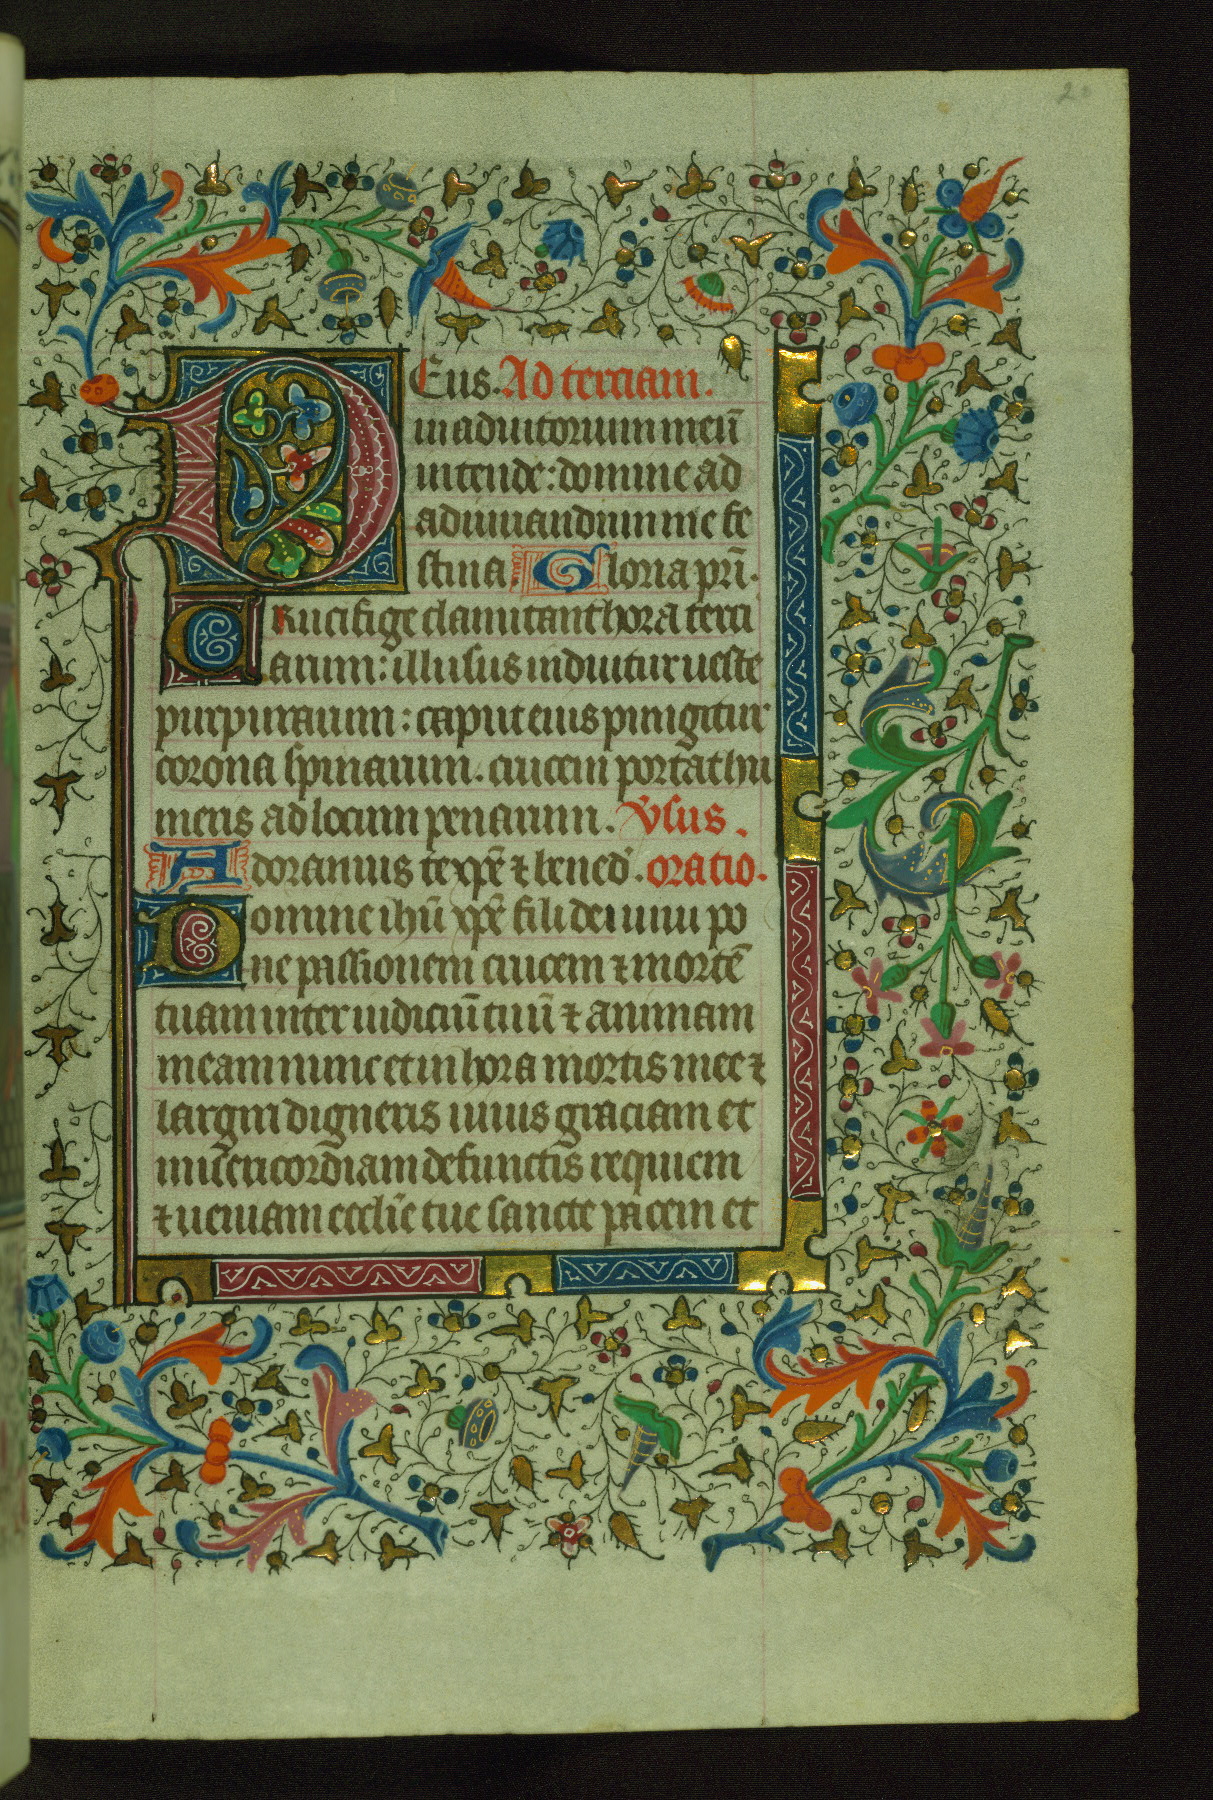 20
DEus. Ad terciam.
in adiutorium meū
intende: domine ad
adiuuandum me fe
stina Gloria pr̄i.
Crucifige clamitant hora terci
arum: illusus induitur ueste
purpurarum: caput eius pungitur
corona spinarum. crucem portat hu
meris ad locum penarum. V̄sus.
Adoramus te xp̄e ⁊ bened̄. oratio.
Domine ihū xp̄e fili dei uiui po
ne passionem crucem ⁊ mortē
tuam inter iudiciū tuū ⁊ animam
meam nunc et in hora mortis mee ⁊
largiri digneris uiuis graciam et
misericordiam defunctis requiem
⁊ ueniam eccl̄ie tue sancte pacem et